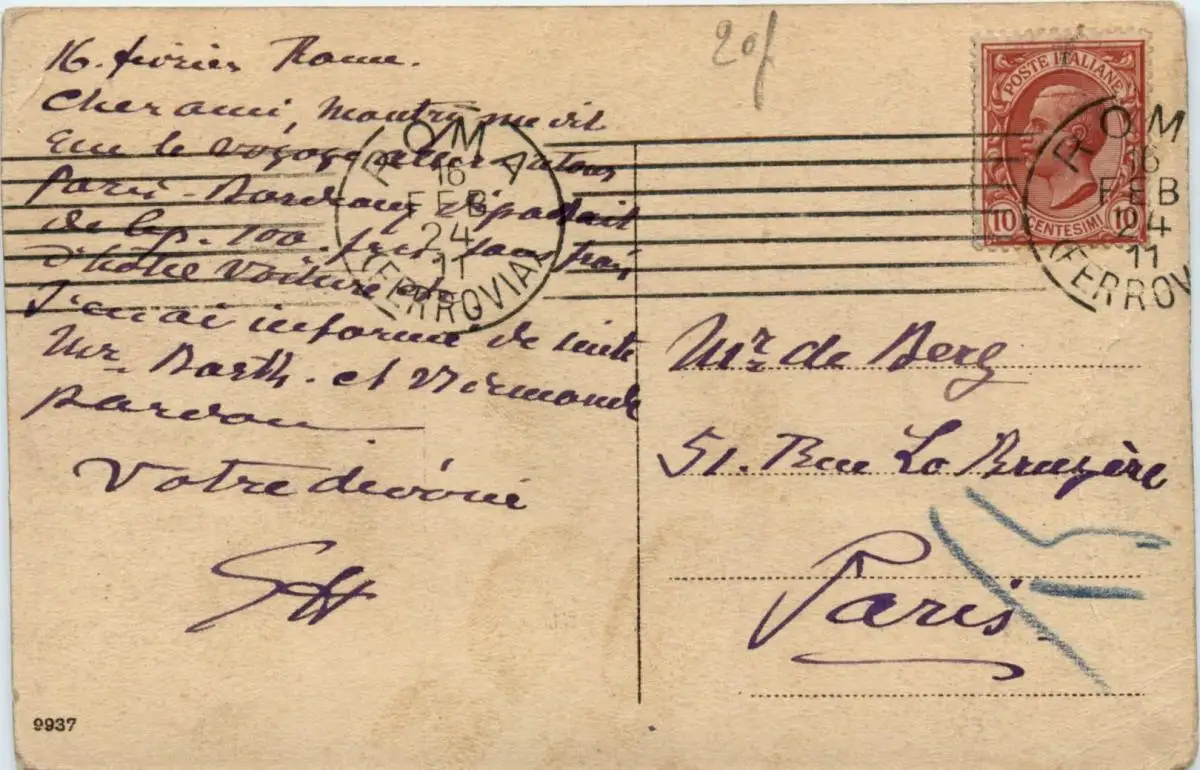 16. février Rome.
Cher ami,
que le voyage aller retour
Paris - Bordeaux
de 100. frcs, sans frais
d'hôtel voiture etc
J'en ai informé de suite
Mr. Barth. et
Pardon
Votre dévoué
20f
POSTE ITALIANE
10 CENTESIMI 10
ROMA
16
FEB
24
11
(FERROVIA)
ROM
16
FEB
24
11
(FERROV
Mr. de Berg
51. Rue La Bruyère
Paris
9937